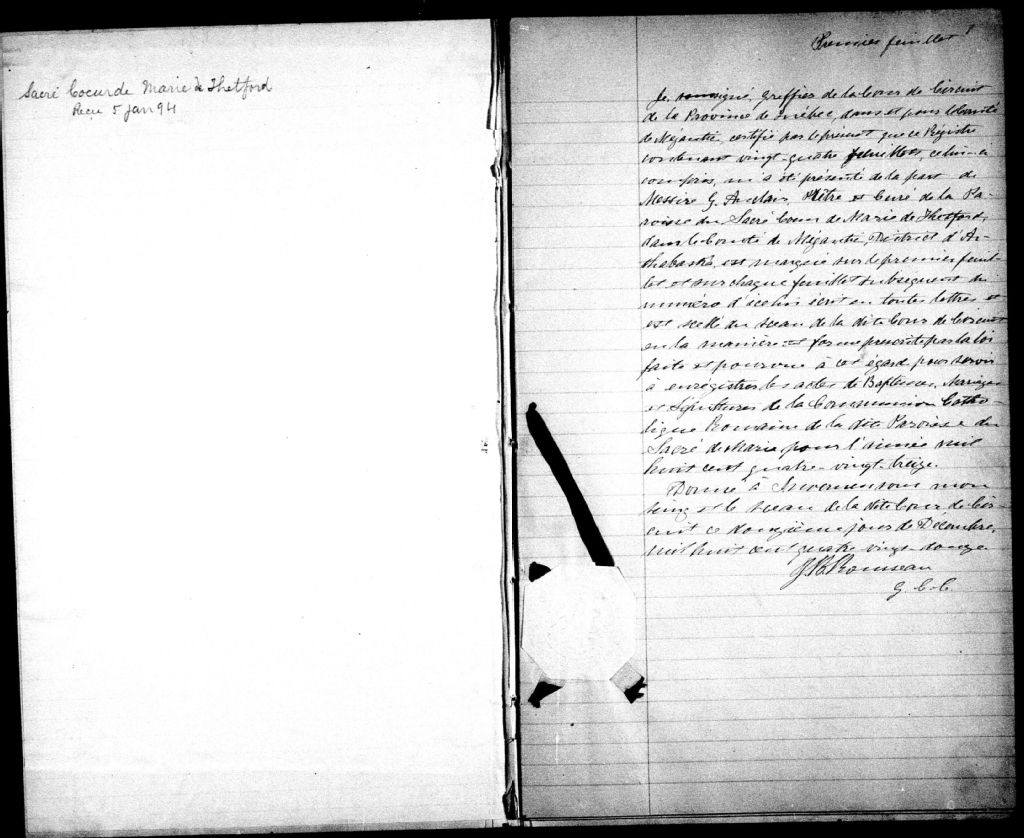 Sacré Coeur de Marie de Thetford
Recu 5 Jan 94
Premier feuillet 1
Je, soussigné, Greffier de la Cour de Circuit
de la Province de Québec, dans et pour le Comté
de Mégantic, certifie par le présent que ce Régistre
contenant vingt-quatre feuillets, celui-ci
compris, m'a été présenté de la part de
Messire G. Prêtre et Curé de la Pa-
roisse du Sacré Coeur de Marie de Thetford,
dans le Comté de Mégantic, District d'Ar-
thabaska, est marqué sur le premier feuil-
let et sur chaque feuillet subséquent du
numéro d'icelui écrit en toutes lettres et
est scellé du sceau de la dite Cour de Circuit
en la manière et forme prescrite par la loi
faite et pourvue à cet égard pour servir
à enrégistrer les actes de Baptêmes, Mariages
et Sépultures de la Communion Catho-
lique Romaine de la dite Paroisse du
Sacré de Marie pour l'année mil
huit cent quatre-vingt-treize.
Donné à Inverness sous mon
seing et le sceau de la dite Cour de Cir-
cuit ce douzième jour de Décembre,
mil huit cent quatre vingt douze
Rousseau
G. C. C.